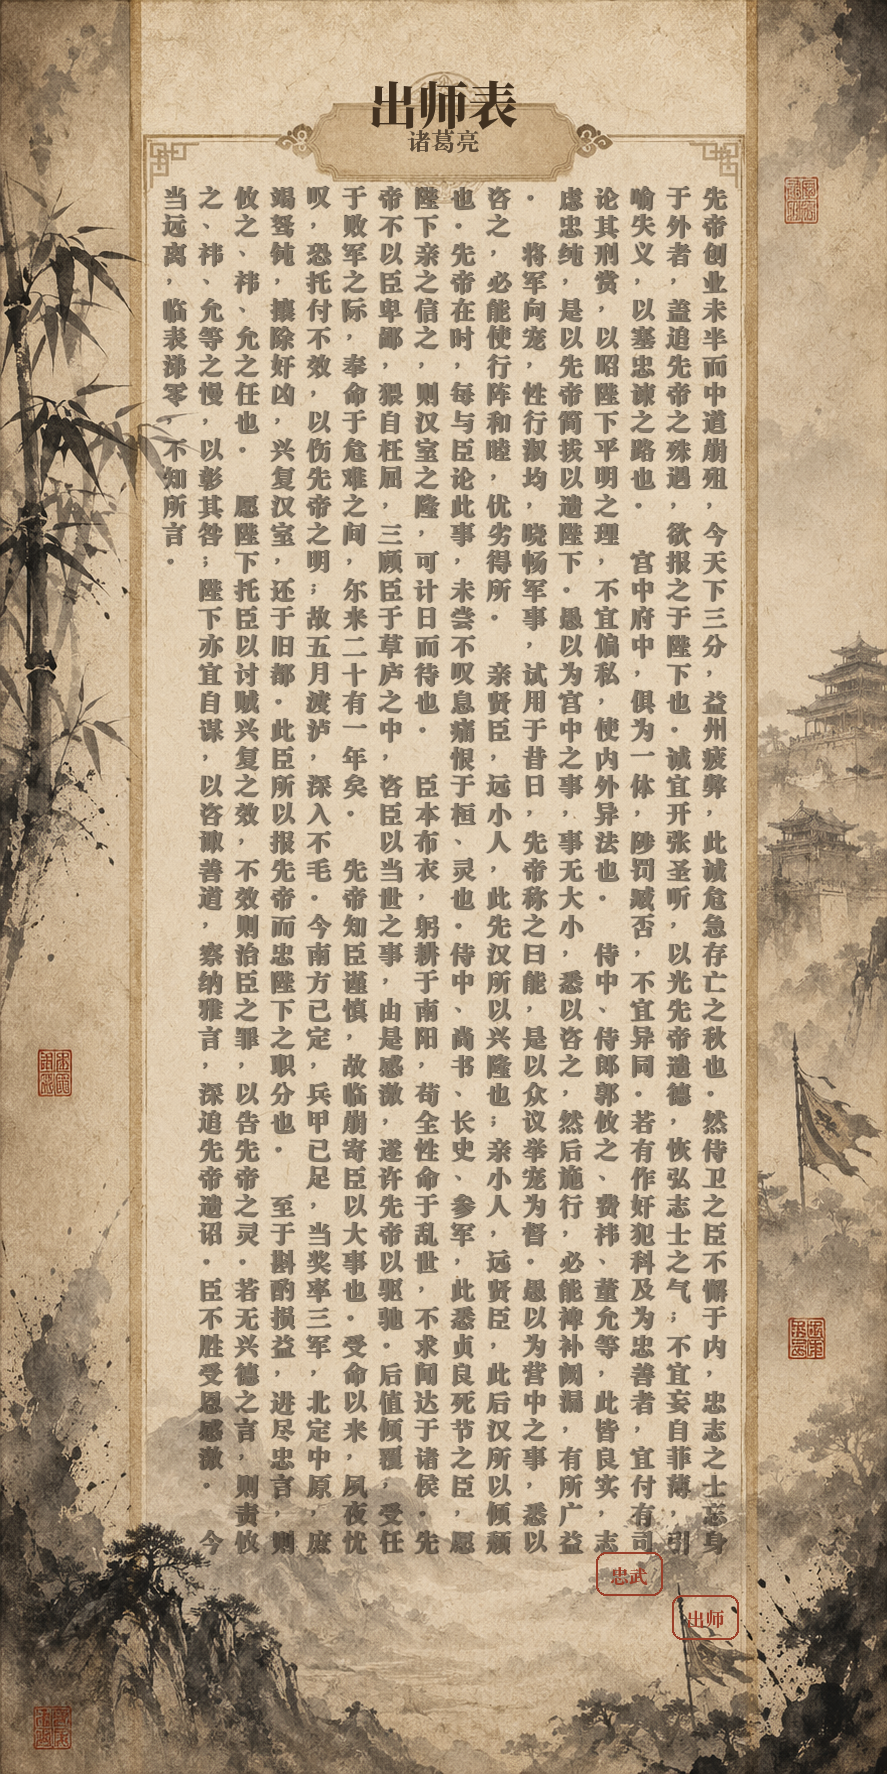 出师表
诸葛亮
先帝创业未半而中道崩殂，今天下三分，益州疲弊，此诚危急存亡之秋也。然侍卫之臣不懈于内，忠志之士忘身
于外者，盖追先帝之殊遇，欲报之于陛下也。诚宜开张圣听，以光先帝遗德，恢弘志士之气；不宜妄自菲薄，引
喻失义，以塞忠谏之路也。 宫中府中，俱为一体，陟罚臧否，不宜异同。若有作奸犯科及为忠善者，宜付有司
论其刑赏，以昭陛下平明之理，不宜偏私，使内外异法也。 侍中、侍郎郭攸之、费祎、董允等，此皆良实，志
虑忠纯，是以先帝简拔以遗陛下。愚以为宫中之事，事无大小，悉以咨之，然后施行，必能裨补阙漏，有所广益
。 将军向宠，性行淑均，晓畅军事，试用于昔日，先帝称之曰能，是以众议举宠为督。愚以为营中之事，悉以
咨之，必能使行阵和睦，优劣得所。 亲贤臣，远小人，此先汉所以兴隆也；亲小人，远贤臣，此后汉所以倾颓
也。先帝在时，每与臣论此事，未尝不叹息痛恨于桓、灵也。侍中、尚书、长史、参军，此悉贞良死节之臣，愿
陛下亲之信之，则汉室之隆，可计日而待也。 臣本布衣，躬耕于南阳，苟全性命于乱世，不求闻达于诸侯。先
帝不以臣卑鄙，猥自枉屈，三顾臣于草庐之中，咨臣以当世之事，由是感激，遂许先帝以驱驰。后值倾覆，受任
于败军之际，奉命于危难之间，尔来二十有一年矣。 先帝知臣谨慎，故临崩寄臣以大事也。受命以来，夙夜忧
叹，恐托付不效，以伤先帝之明；故五月渡泸，深入不毛。今南方已定，兵甲已足，当奖率三军，北定中原，庶
竭驽钝，攘除奸凶，兴复汉室，还于旧都。此臣所以报先帝而忠陛下之职分也。 至于斟酌损益，进尽忠言，则
攸之、祎、允之任也。 愿陛下托臣以讨贼兴复之效，不效则治臣之罪，以告先帝之灵。若无兴德之言，则责攸
之、祎、允等之慢，以彰其咎；陛下亦宜自谋，以咨诹善道，察纳雅言，深追先帝遗诏。臣不胜受恩感激。 今
当远离，临表涕零，不知所言。
忠武
出师